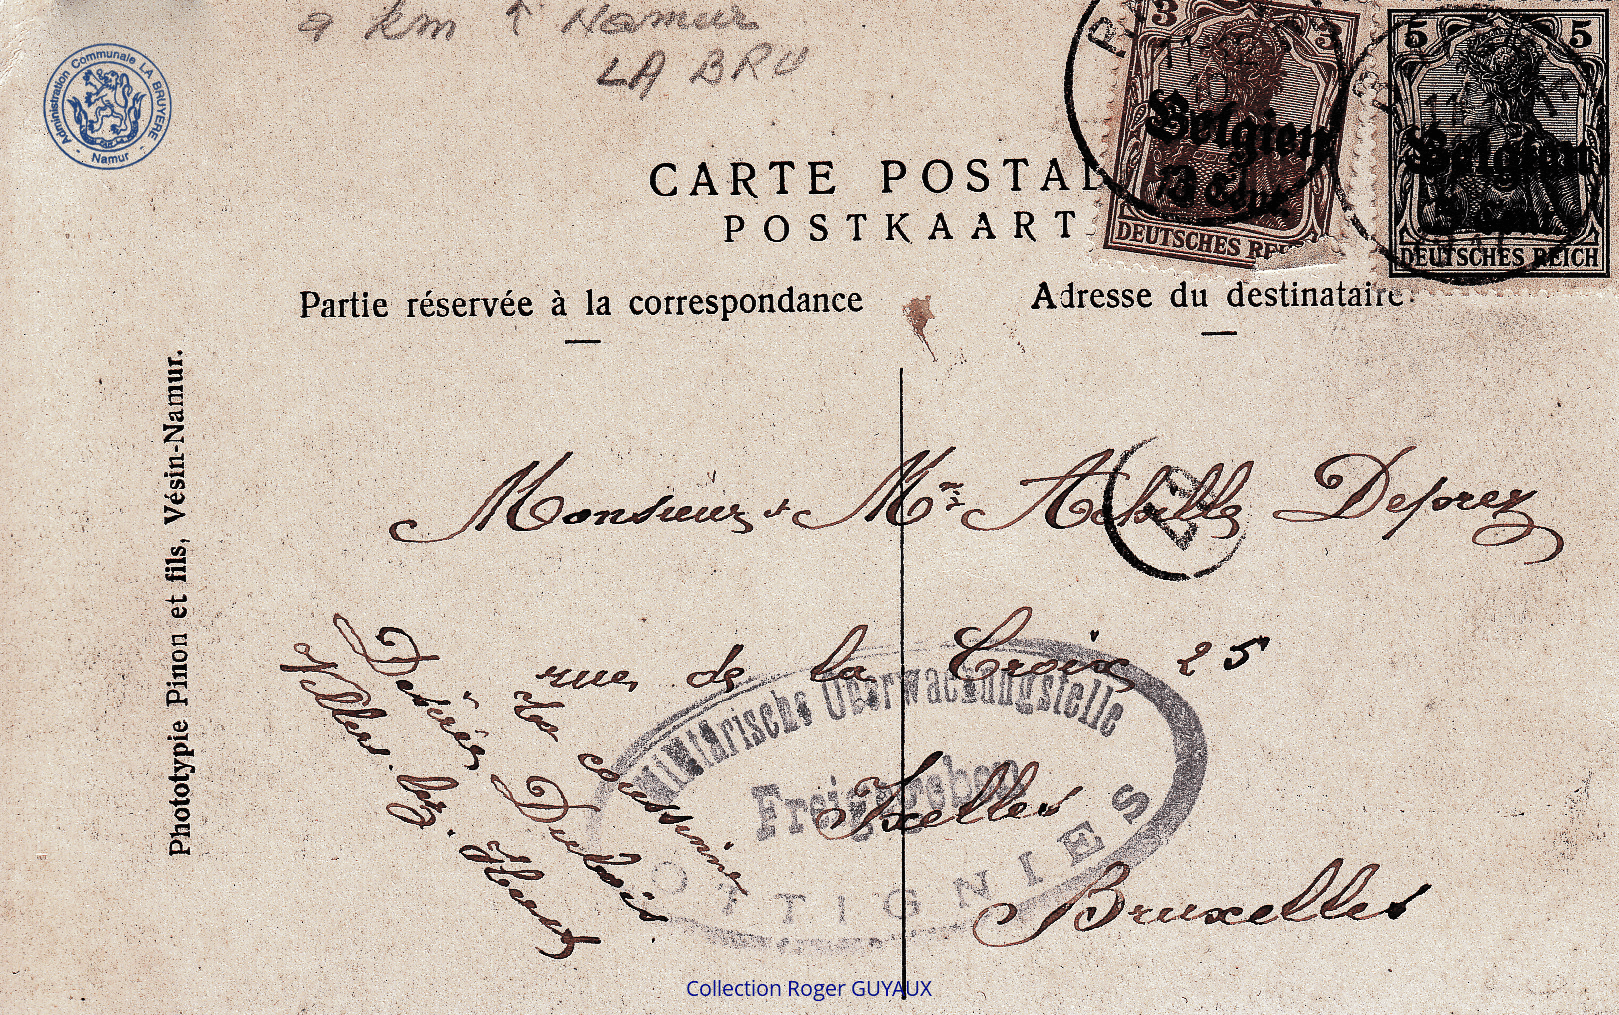 9 km ↑ Namur
LA BRU
Administration Communale LA BRUYERE
- Namur -
3 3
Belgien
3 Cent.
DEUTSCHES REICH
5 5
Belgien
DEUTSCHES REICH
CARTE POSTAL
POSTKAART
Partie réservée à la correspondance
Adresse du destinataire.
Phototypie Pinon et fils, Vésin-Namur.
Monsieur & Mme Achille Deprez
rue de la Croix 25
Ixelles
Bruxelles
Militärische Überwachungstelle
Freigegeben
OTTIGNIES
cousine
Désirée Dubois
Collection Roger GUYAUX